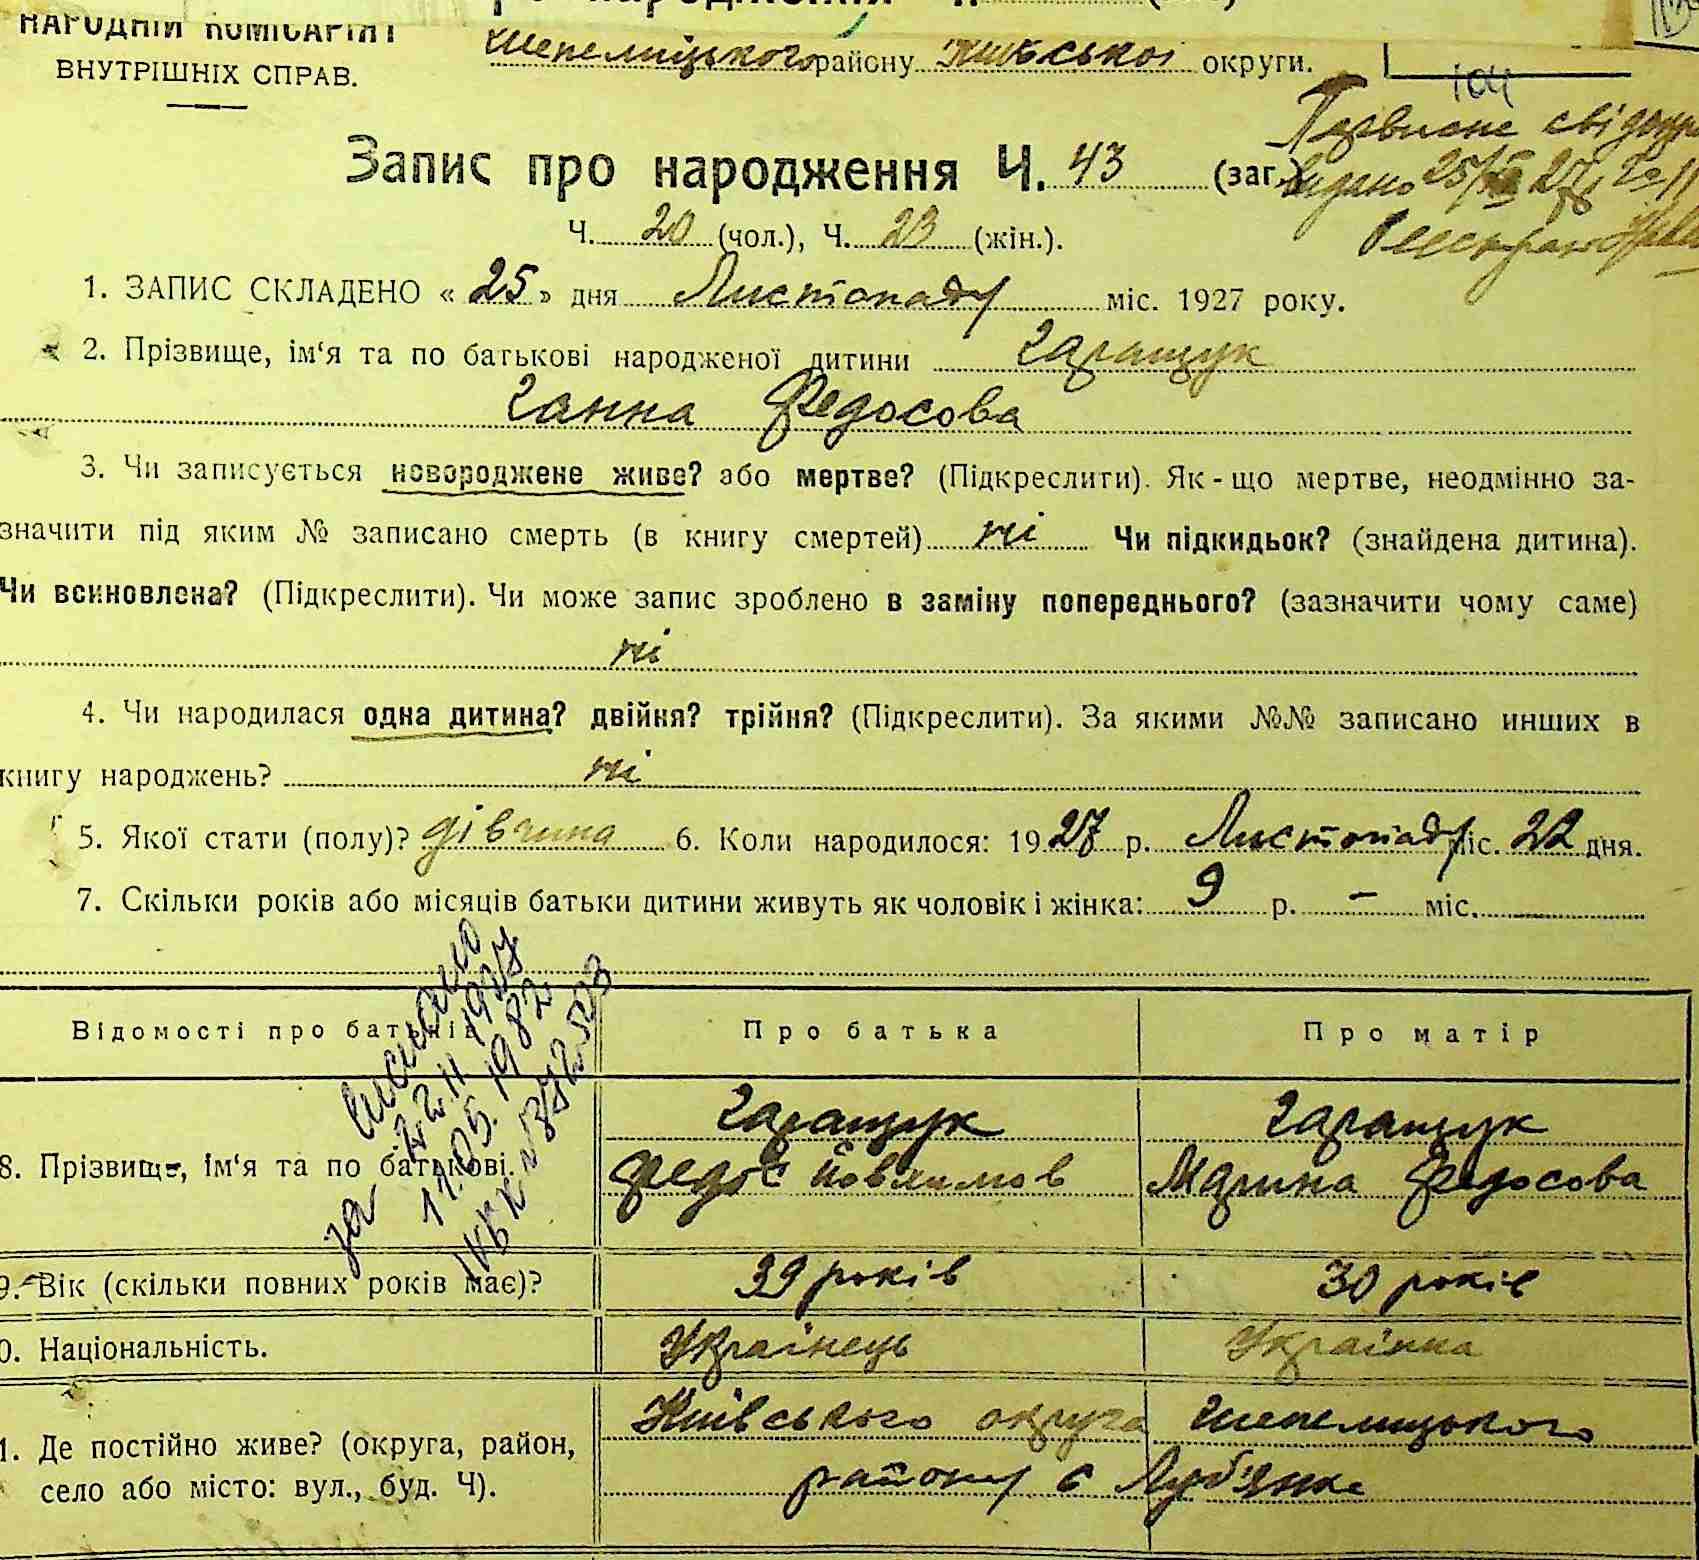 НАРОДНІЙ КОМІСАРІЯТ
ВНУТРІШНІХ СПРАВ.
Шепелицького району Київської округи.
104
Первисне
видано 25/XI 27
Запис про народження Ч. 43 (заг.)
Ч. 20 (чол.), Ч. 23 (жін.).
1. ЗАПИС СКЛАДЕНО « 25 » дня Листопаду міс. 1927 року.
2. Прізвище, ім‘я та по батькові народженої дитини Гаращук
Ганна Федосова
3. Чи записується новороджене живе? або мертве? (Підкреслити). Як - що мертве, неодмінно за-
значити під яким № записано смерть (в книгу смертей) ні Чи підкидьок? (знайдена дитина).
Чи всиновлена? (Підкреслити). Чи може запис зроблено в заміну попереднього? (зазначити чому саме)
ні
4. Чи народилася одна дитина? двійня? трійня? (Підкреслити). За якими №№ записано инших в
книгу народжень? ні
5. Якої стати (полу)? дівчина 6. Коли народилося: 1927 р. Листопаду міс. 22 дня.
7. Скільки років або місяців батьки дитини живуть як чоловік і жінка: 9 р. – міс.
Відомості про батьків Про батька Про матір
8. Прізвище, ім‘я та по батькові. Гаращук Гаращук
Федос Марина Федосова
9. Вік (скільки повних років має)? 39 років 30 років
0. Національність. Українець Українка
1. Де постійно живе? (округа, район, село або місто: вул., буд. Ч). Київського округа Шепелицького
району с Луб'янка
22.11 1927
за 11.05. 1982